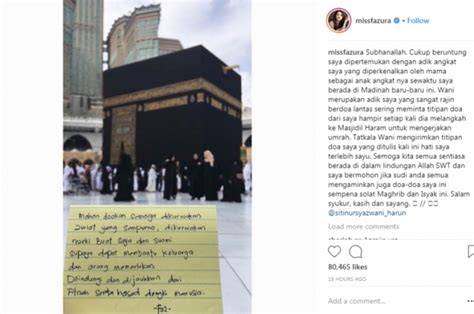 missfazura
missfazura Subhanallah. Cukup beruntung
saya dipertemukan dengan adik angkat
saya yang diperkenalkan oleh mama
sebagai anak angkat nya sewaktu saya
berada di Madinah baru-baru ini. Wani
merupakan adik saya yang sangat rajin
berdoa lantas sering meminta titipan doa
dari saya hampir setiap kali dia melangkah
ke Masjidil Haram untuk mengerjakan
umrah. Tatkala Wani mengirimkan titipan
doa yang ditulis kali ini hati saya
terlebih sayu. Semoga kita semua sentiasa
berada di dalam lindungan Allah SWT dan
saya bermohon jika sudi anda semua
mengaminkan juga doa-doa saya ini
sempena solat Maghrib dan Isyak ini. Salam
syukur, kasih dan sayang. // //
@sitinursyazwani_harun
Load more comments
80,465 likes
18 HOURS AGO
Add a comment...
Mohon doakan semoga dikurniakan
zuriat yang sempurna, dikurniakan
rezeki buat saya dan suami
supaya dapat membantu keluarga
dan orang memerlukan
Dilindungi dan dijauhkan dari
fitnah serta hasad dengki manusia.